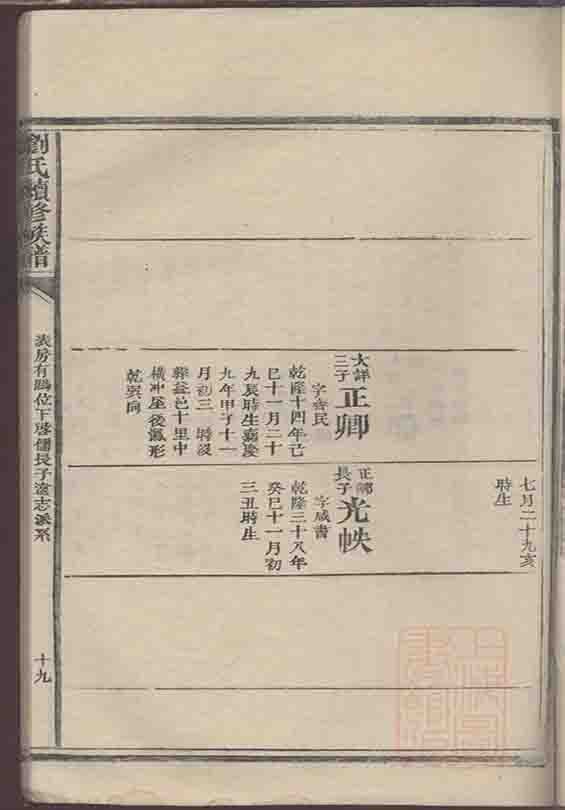 七月二十九亥
時生
大詳
三子
正卿
字善民
乾隆十四年己
巳十一月二十
九辰時生嘉慶
九年甲子十一
月初三 時沒
葬益邑十里中
橫冲屋後鳳形
乾巽向
正卿
長子
光帙
字咸書
乾隆三十八年
癸巳十一月初
三丑時生
劉氏續修族譜
房有鵬位下啓儒長子 志派系
十九